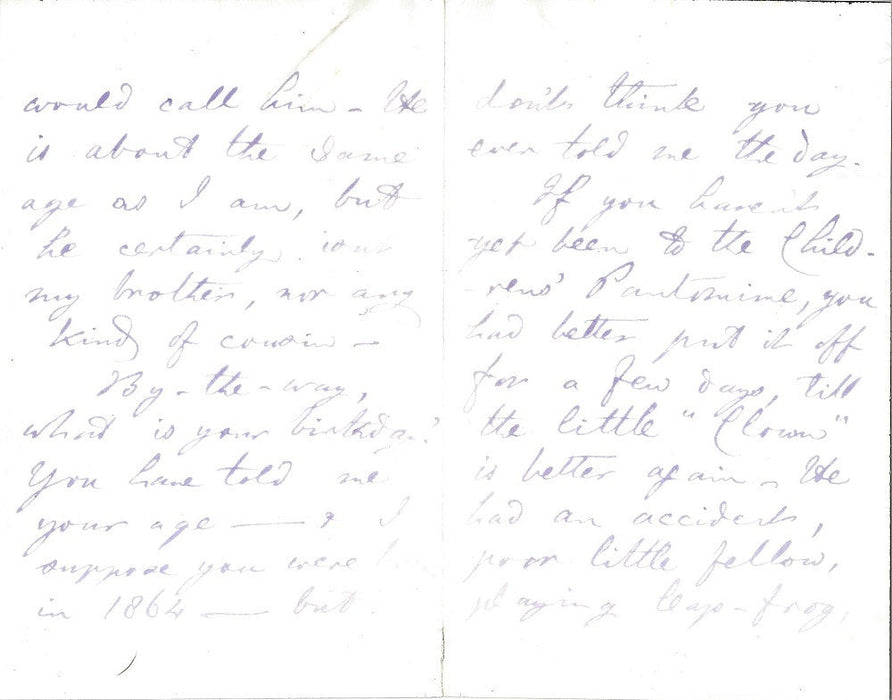 would call him – He
is about the same
age as I am, but
he certainly isn't
my brother, nor any
kind of cousin –
By-the-way,
what is your birthday?
You have told me
your age —— & I
suppose you were
in 1864 —— but
don't think you
ever told me the day.
If you haven't
yet been to the Child-
-rens' Pantomime, you
had better put it off
for a few days, till
the little "Clown"
is better again – He
had an accident,
poor little fellow,
playing leap-frog,